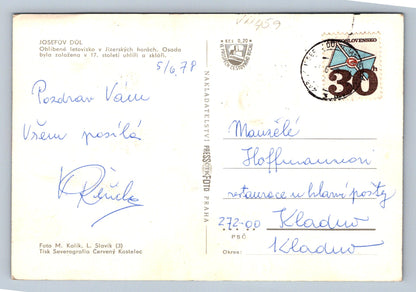 VII/459
JOSEFŮV DŮL
Oblíbené letovisko v Jizerských horách. Osada
byla založena v 17. století uhlíři a skláři.
5/6 78
Pozdrav Vám
Všem posílá
Foto M. Kolík, L. Slavík (3)
Tisk Severografia Červený Kostelec
NAKLADATELSTVÍ PRESSFOTO PRAHA
Kčs 0,70
ČESKOSLOVENSKO
30h
Manželé
Hoffmannovi
restaurace u hlavní pošty
272-00 Kladno
PSČ
Kladno
Okres: